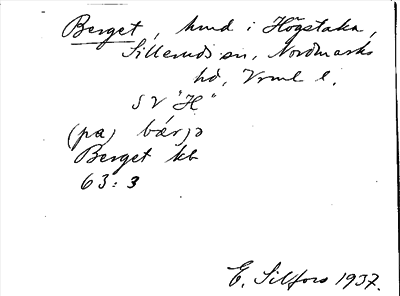 Berget, hmd i Högstaka,
Silleruds sn, Nordmarks
hd, Vrml l.
SV "H"
(pa) bærjə
Berget kb
63:3
E. Silfors 1937.